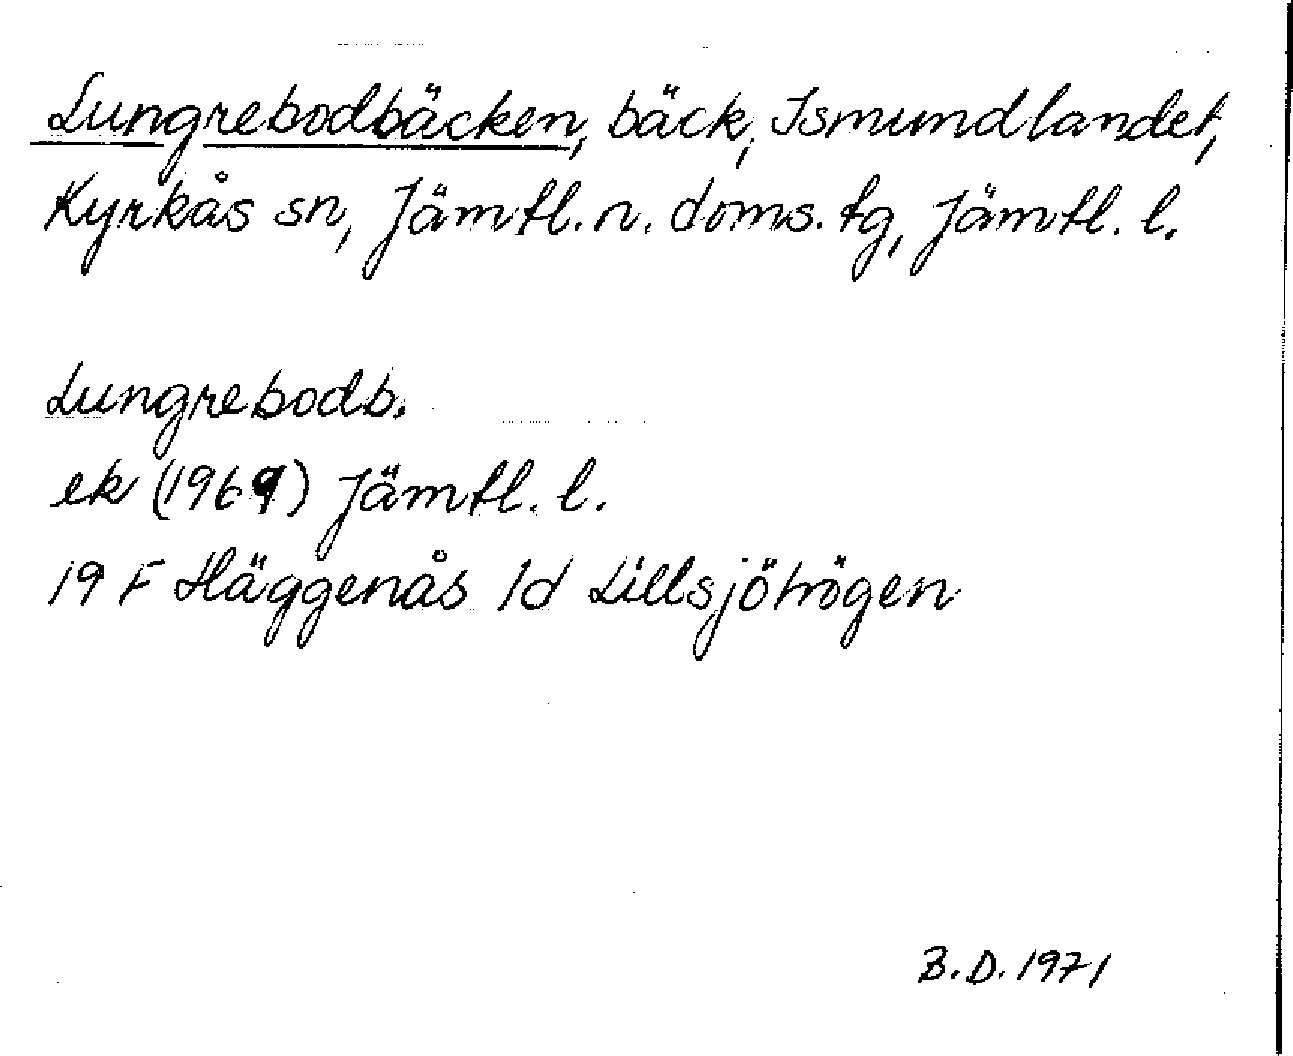 Lungrebodbäcken, bäck, Ismundlandet,
Kyrkås sn, Jämtl. n. doms. tg, Jämtl. l.
Lungrebodb.
ek (1969) Jämtl. l.
19 F Häggenås 1d Lillsjöhögen
B.D. 1971